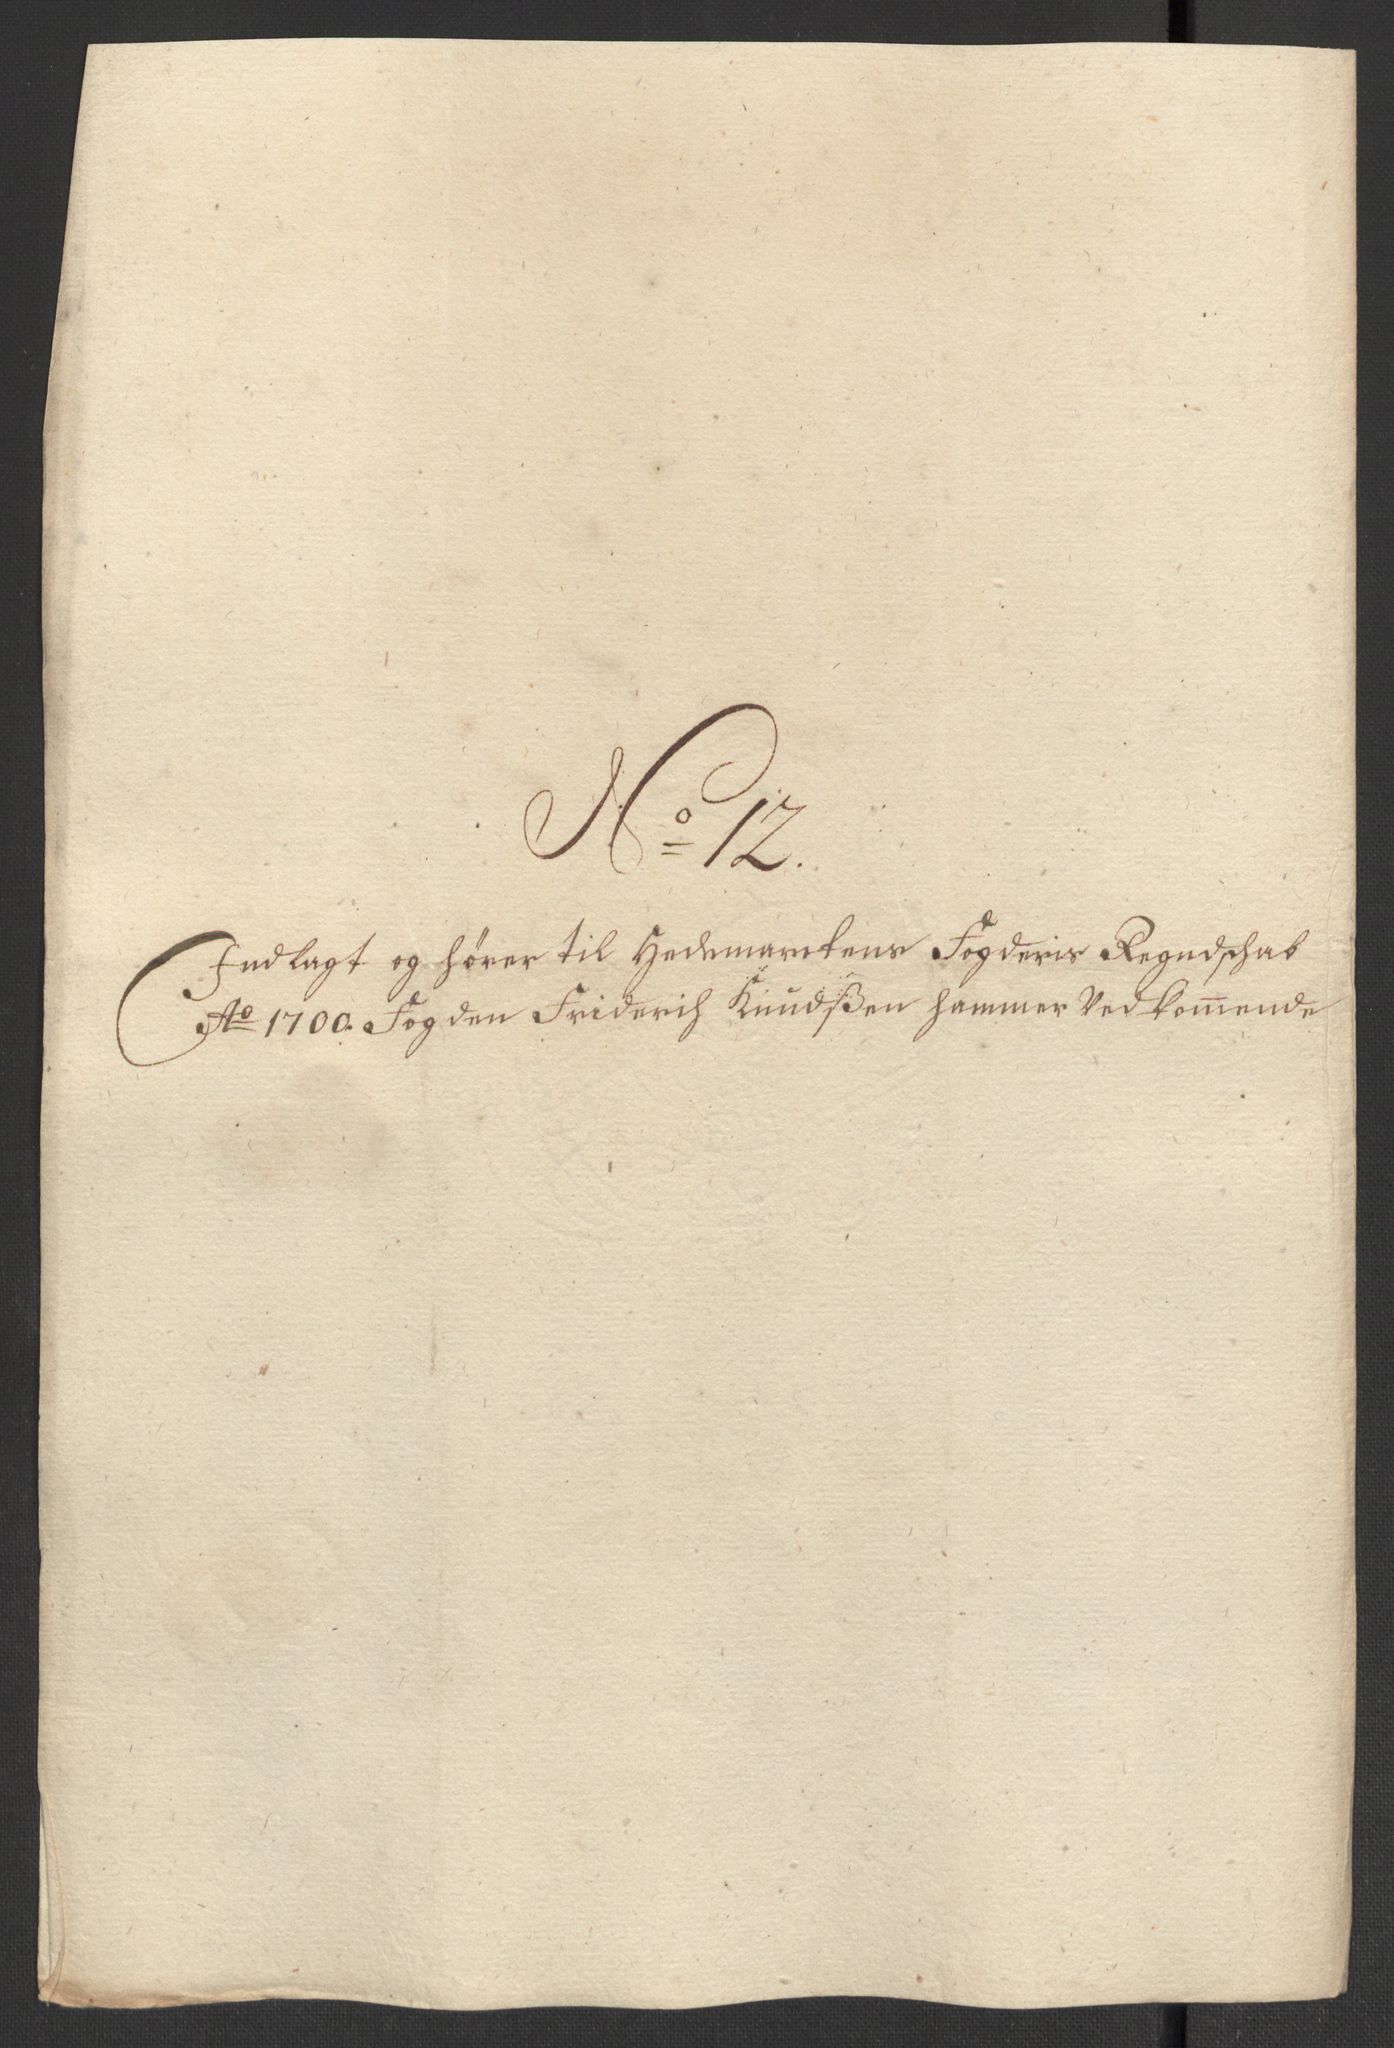 No 12.
Indlagt og hører til Hedemarckens Fogderis Regndschab
Ao 1700. Fogden Friderich Knudsßen hammer Vedkom̄ende